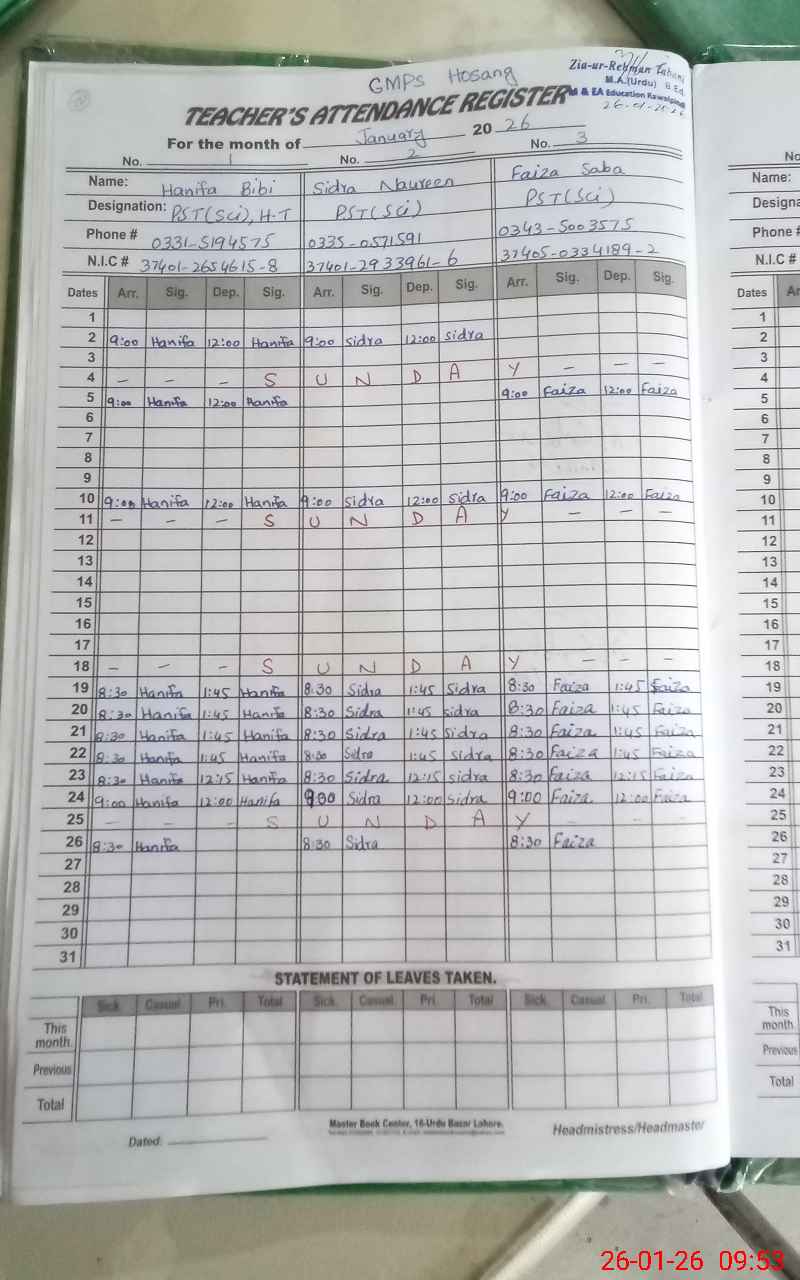 GMPS Hosang
Zia-ur-Rehman Tabani
M.A.(Urdu) B.Ed.
M & EA Education Rawalpindi
26-01-2026
TEACHER'S ATTENDANCE REGISTER
For the month of January 2026
No. 1 No. 2 No. 3
Name: Hanifa Bibi Sidra Naureen Faiza Saba
Designation: PST(Sci), H-T PST(Sci) PST(Sci)
Phone # 0331-5194575 0335-0571591 0343-5003575
N.I.C # 37401-2654615-8 37401-2933961-6 37405-0334189-2
Dates Arr. Sig. Dep. Sig. Arr. Sig. Dep. Sig. Arr. Sig. Dep. Sig.
1
2 9:00 Hanifa 12:00 Hanifa 9:00 Sidra 12:00 Sidra
3
4 - - - S U N D A Y - - -
5 9:00 Hanifa 12:00 Hanifa 9:00 Faiza 12:00 Faiza
6
7
8
9
10 9:00 Hanifa 12:00 Hanifa 9:00 Sidra 12:00 Sidra 9:00 Faiza 12:00 Faiza
11 - - - S U N D A Y - - -
12
13
14
15
16
17
18 - - - S U N D A Y - - -
19 8:30 Hanifa 1:45 Hanifa 8:30 Sidra 1:45 Sidra 8:30 Faiza 1:45 Faiza
20 8:30 Hanifa 1:45 Hanifa 8:30 Sidra 1:45 Sidra 8:30 Faiza 1:45 Faiza
21 8:30 Hanifa 1:45 Hanifa 8:30 Sidra 1:45 Sidra 8:30 Faiza 1:45 Faiza
22 8:30 Hanifa 1:45 Hanifa 8:30 Sidra 1:45 Sidra 8:30 Faiza 1:45 Faiza
23 8:30 Hanifa 12:15 Hanifa 8:30 Sidra 12:15 Sidra 8:30 Faiza 12:15 Faiza
24 9:00 Hanifa 12:00 Hanifa 9:00 Sidra 12:00 Sidra 9:00 Faiza 12:00 Faiza
25 - - - S U N D A Y - - -
26 8:30 Hanifa 8:30 Sidra 8:30 Faiza
27
28
29
30
31
STATEMENT OF LEAVES TAKEN.
Sick Casual Pri. Total Sick. Casual Pri. Total Sick. Casual Pri. Total
This month.
Previous
Total
Master Book Center, 16-Urdu Bazar Lahore.
Dated: Headmistress/Headmaster
No
Name:
Designa
Phone #
N.I.C #
Dates Ar
1
2
3
4
5
6
7
8
9
10
11
12
13
14
15
16
17
18
19
20
21
22
23
24
25
26
27
28
29
30
31
This month.
Previous
Total
26-01-26 09:53